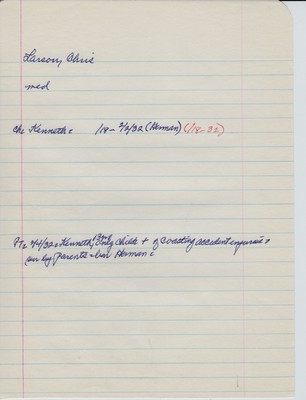 Larson, Chris
med
Ch: Kenneth = /18 - 2/2/32 (Herman) (/18-32)
Pr= 2/4/32 = Kenneth, only child + of coasting accident injuries =
sur by parents = bur Herman =